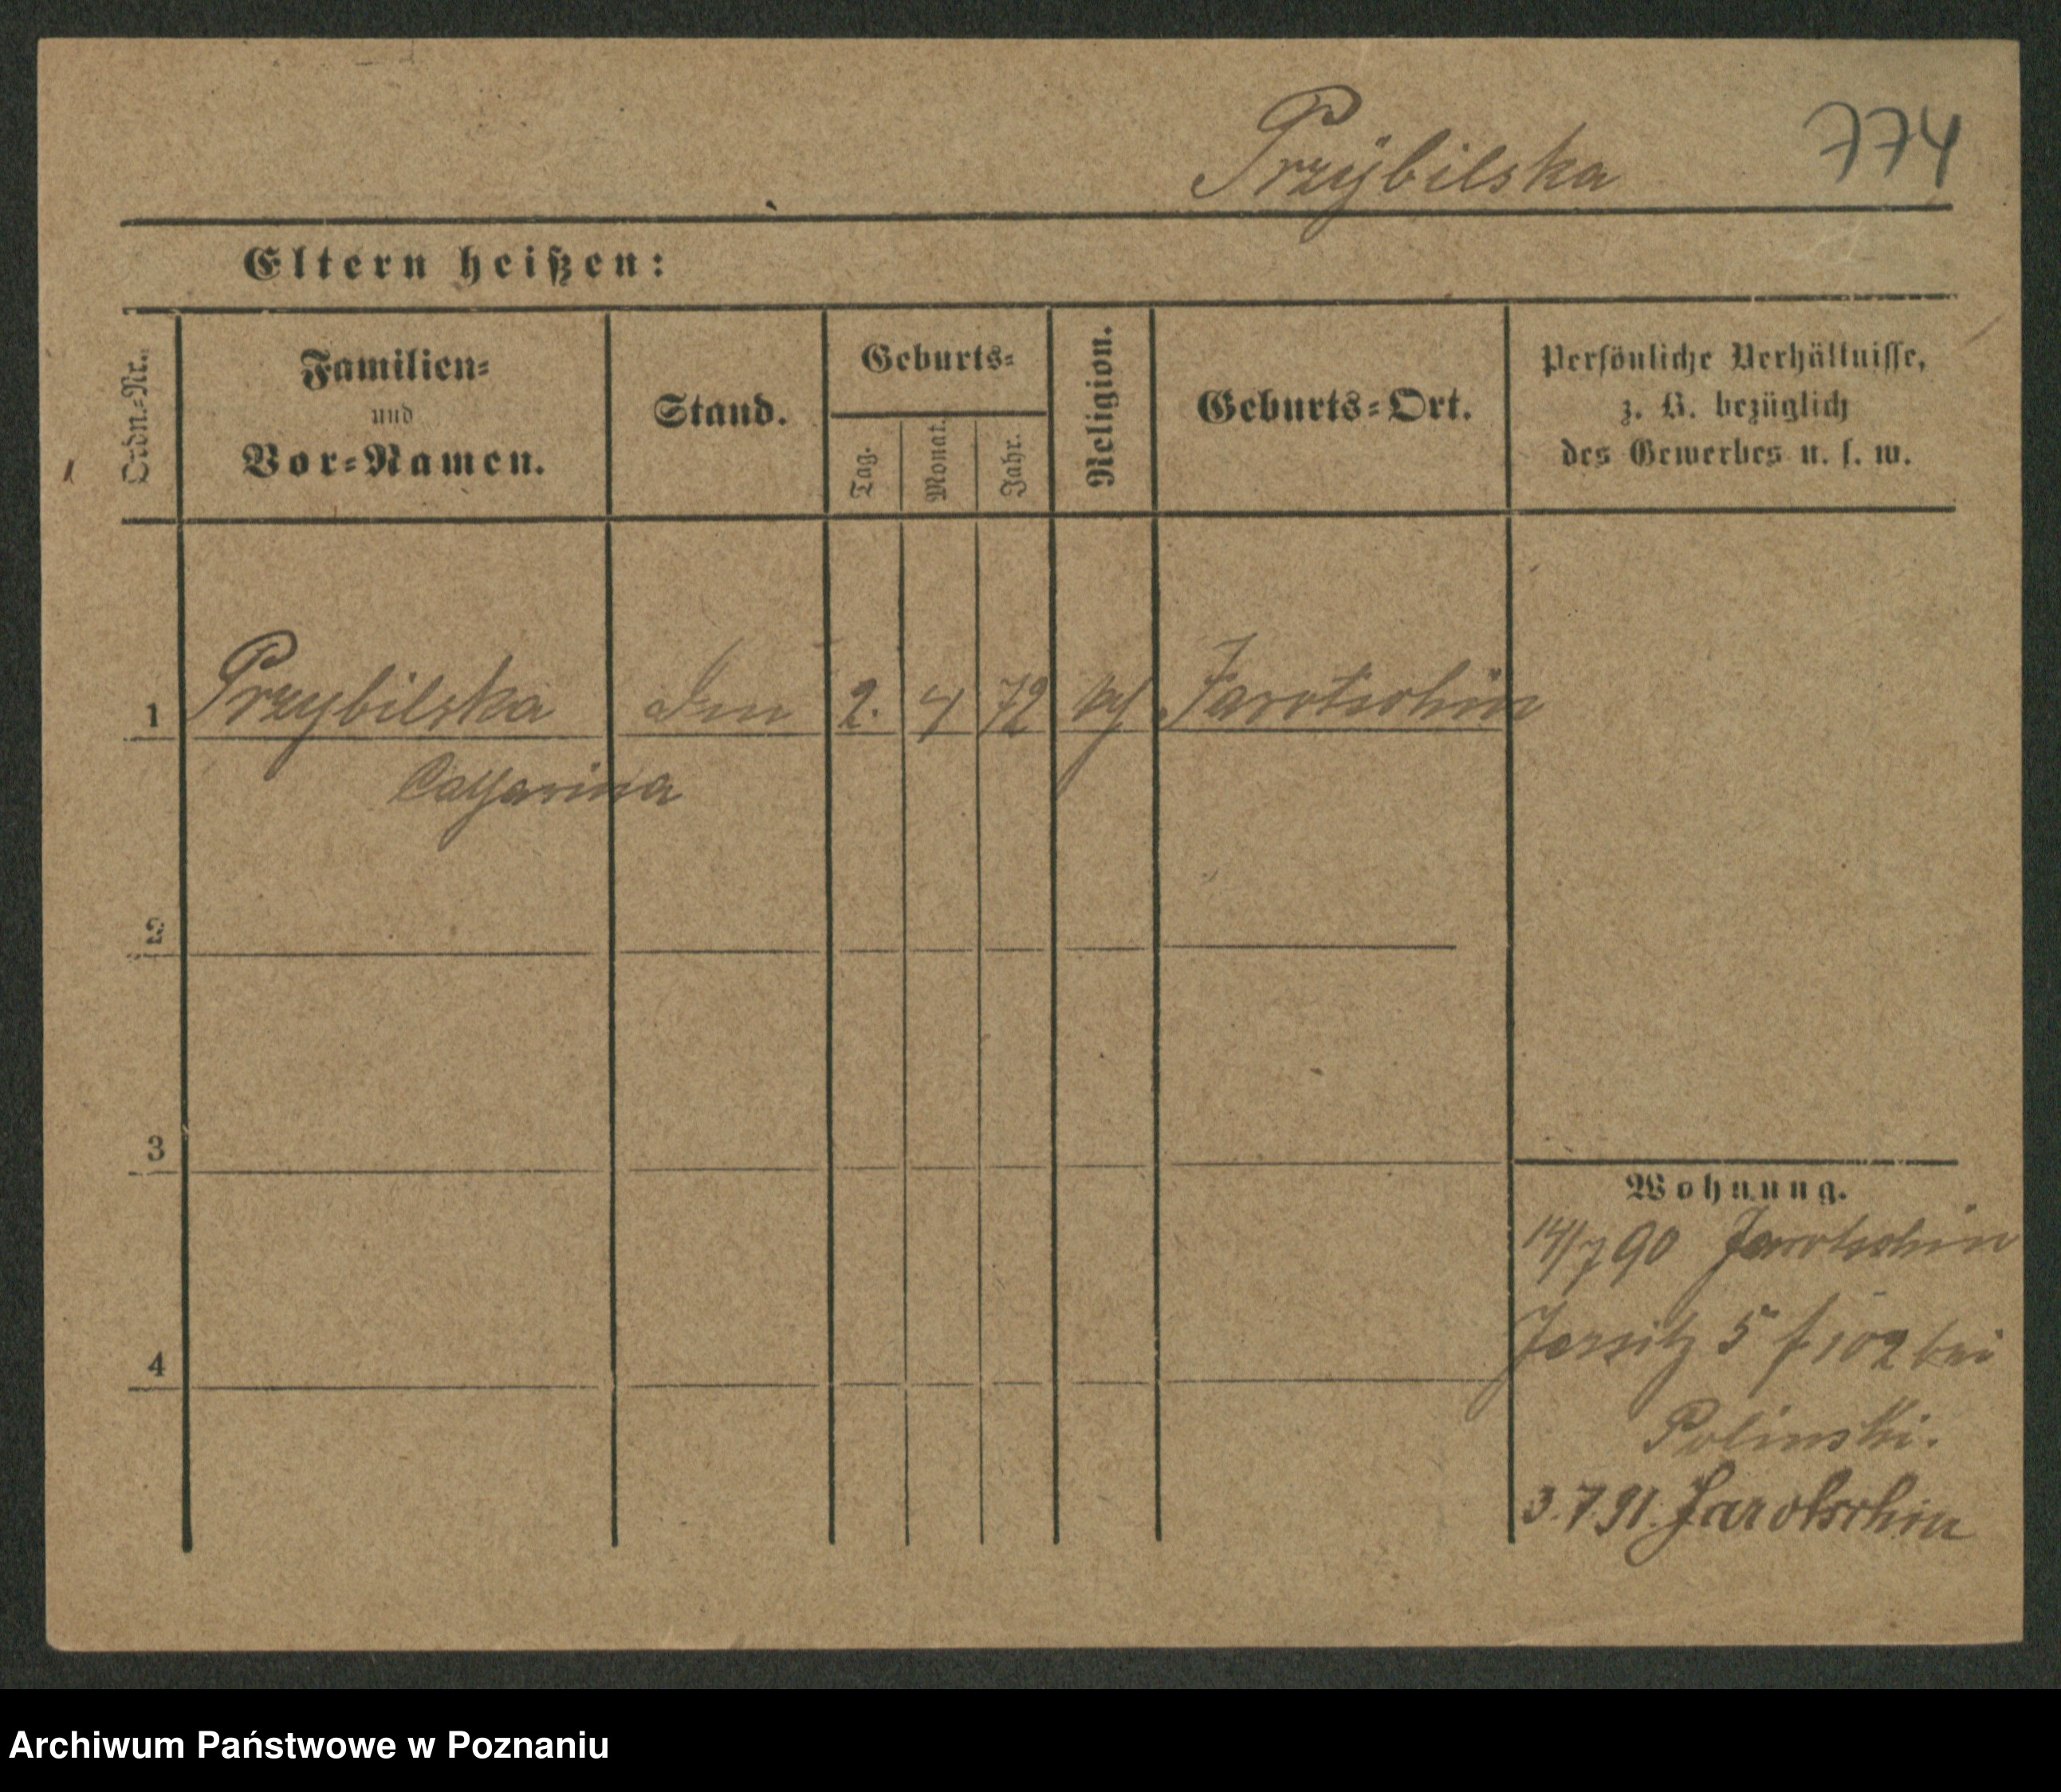 Przÿbilska 774
Eltern heißen:
Ordn.-Nr.
Familien-
und
Vor-Namen.
Stand.
Geburts-
Tag.
Monat.
Jahr.
Religion.
Geburts-Ort.
Persönliche Verhältnisse,
z. B. bezüglich
des Gewerbes u. s. w.
1 Przybilska 2. 4 72 Jarotschin
Catharina
2
3
4
Wohnung.
14/7 90 Jarotschin
Jersitz 5 f 102 bei
Polinski.
3.7.91. Jarotschin
Archiwum Państwowe w Poznaniu